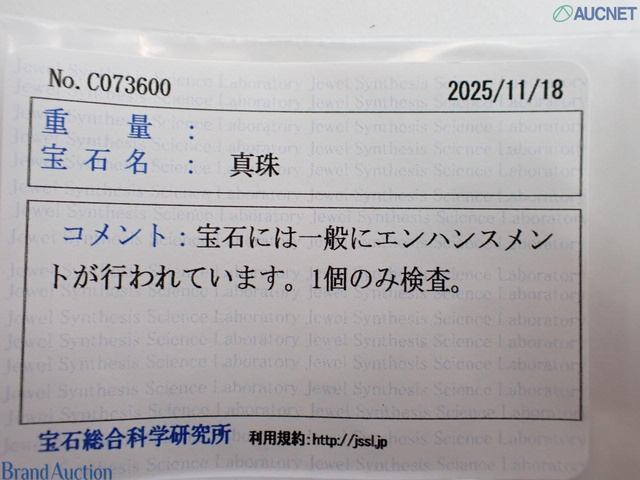 AUCNET
No.C073600 2025/11/18
重量：
宝石名： 真珠
コメント：宝石には一般にエンハンスメン
トが行われています。1個のみ検査。
宝石総合科学研究所 利用規約:http://jssl.jp
Brand Auction
Jewel Synthesis Science Laboratory